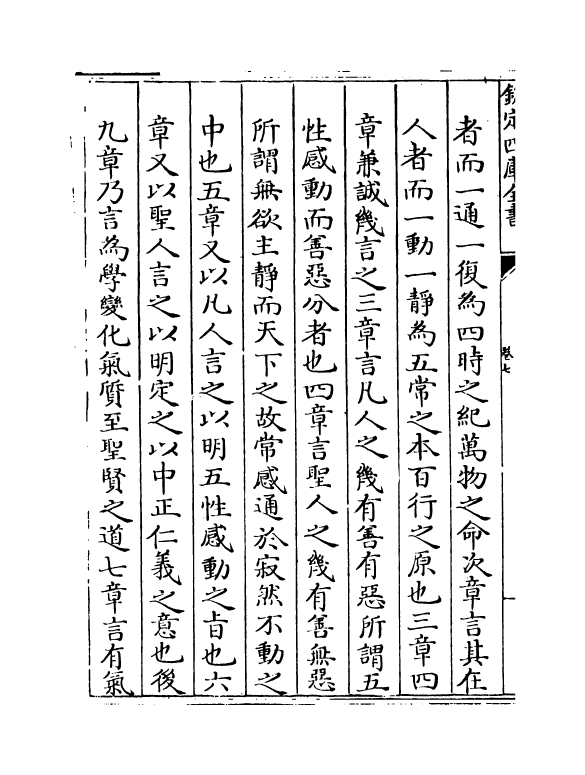 欽定四庫全書
卷七
者而一通一復為四時之紀萬物之命次章言其在
人者而一動一靜為五常之本百行之原也三章四
章兼誠幾言之三章言凡人之幾有善有惡所謂五
性感動而善惡分者也四章言聖人之幾有善無惡
所謂無欲主靜而天下之故常感通於寂然不動之
中也五章又以凡人言之以明五性感動之旨也六
章又以聖人言之以明定之以中正仁義之意也後
九章乃言為學變化氣質至聖賢之道七章言有氣